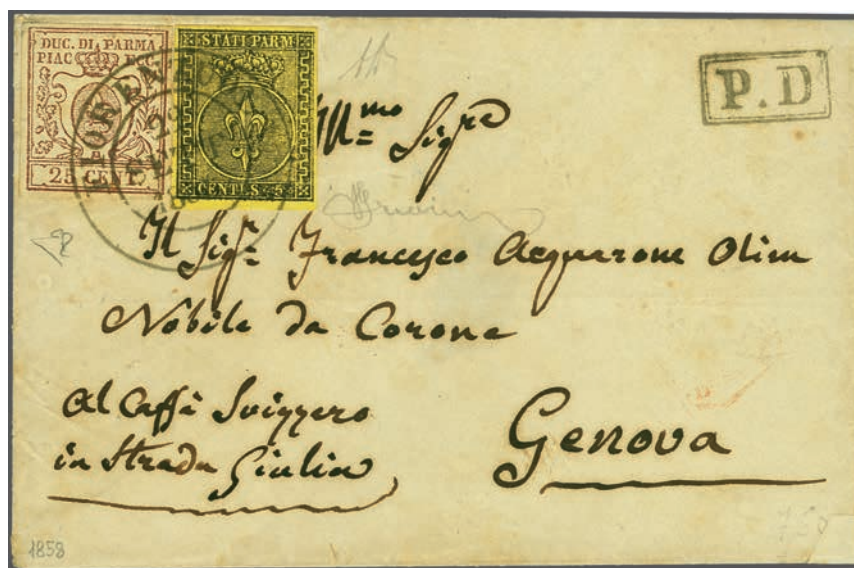 DUC. DI PARMA
PIAC ECC.
25 CENT.
STATI PARM
CENTES. 5
P.D
Ill=mo Sigre
Il Sigr= Francesco Acquarone Olim
Nobile da Corone
Al Caffè Svizzero
in Strada Giulia
Genova
1858